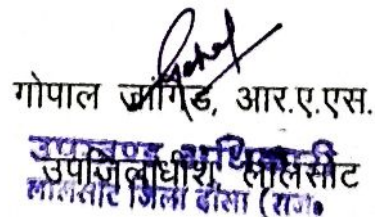 गोपाल जांगिड, आर.ए.एस.
उपखण्ड अधिकारी
उपजिलाधीश, लालसोट
लालसोट जिला दौसा (राज०